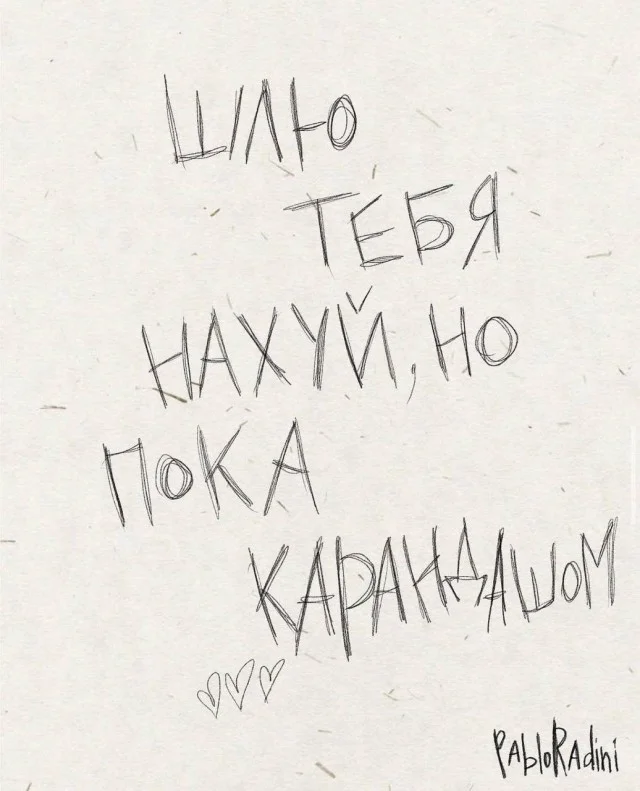 ШЛЮ
ТЕБЯ
НАХУЙ, НО
ПОКА
КАРАНДАШОМ
PAbloRAdini